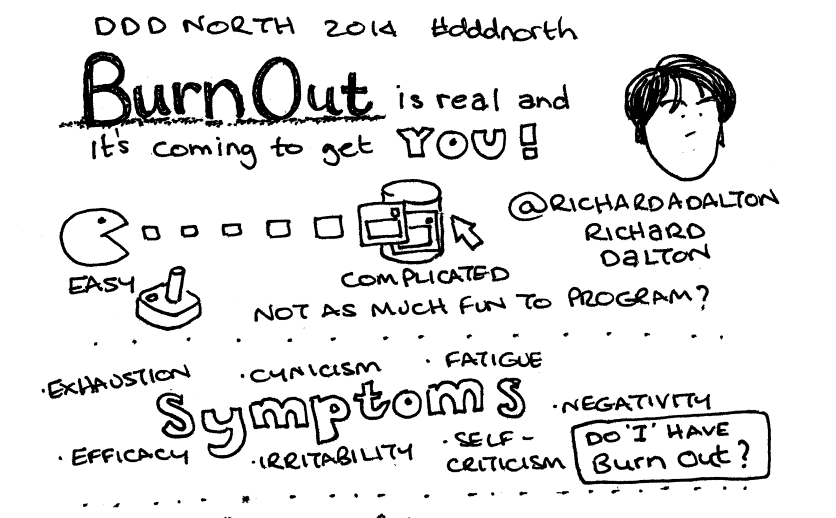 DDD NORTH 2014 #dddnorth
BurnOut is real and
it's coming to get YOU!
@RICHARDADALTON
RICHARD
DALTON
EASY
COMPLICATED
NOT AS MUCH FUN TO PROGRAM?
·EXHAUSTION ·CYNICISM · FATIGUE
Symptoms
·NEGATIVITY
· EFFICACY ·IRRITABILITY ·SELF-
CRITICISM
DO 'I' HAVE
Burn Out?